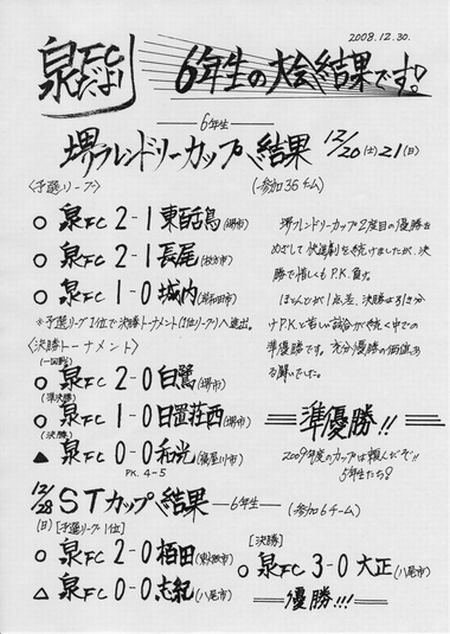 2008.12.30.
泉FCだより
6年生の大会結果です!
6年生
堺フレンドリーカップ結果 12/20(土)21(日)
<予選リーグ>
(参加36チーム)
○ 泉FC 2-1 東百舌鳥(堺市)
○ 泉FC 2-1 長尾(枚方市)
○ 泉FC 1-0 城内(岸和田市)
※予選リーグ1位で決勝トーナメント(1位リーグ)へ進出。
堺フレンドリーカップ2度目の優勝を
めざして快進撃を続けましたが、決
勝で惜しくもP.K.負け。
ほとんどが1点差、決勝は引き分
けP.Kと苦しい試合が続く中での
準優勝です。充分優勝の価値あ
る闘いでした。
<決勝トーナメント>
(一回戦)
○ 泉FC 2-0 白鷺(堺市)
(準決勝)
○ 泉FC 1-0 日置荘西(堺市)
(決勝)
▲ 泉FC 0-0 和光(寝屋川市)
PK. 4-5
準優勝!!
2009年度のカップは頼んだぞ!!
5年生たち!
12/28 STカップ結果 6年生 (参加6チーム)
(日) [予選リーグ1位]
○ 泉FC 2-0 栢田
△ 泉FC 0-0 志紀(八尾市)
[決勝]
○ 泉FC 3-0 大正(八尾市)
優勝!!!